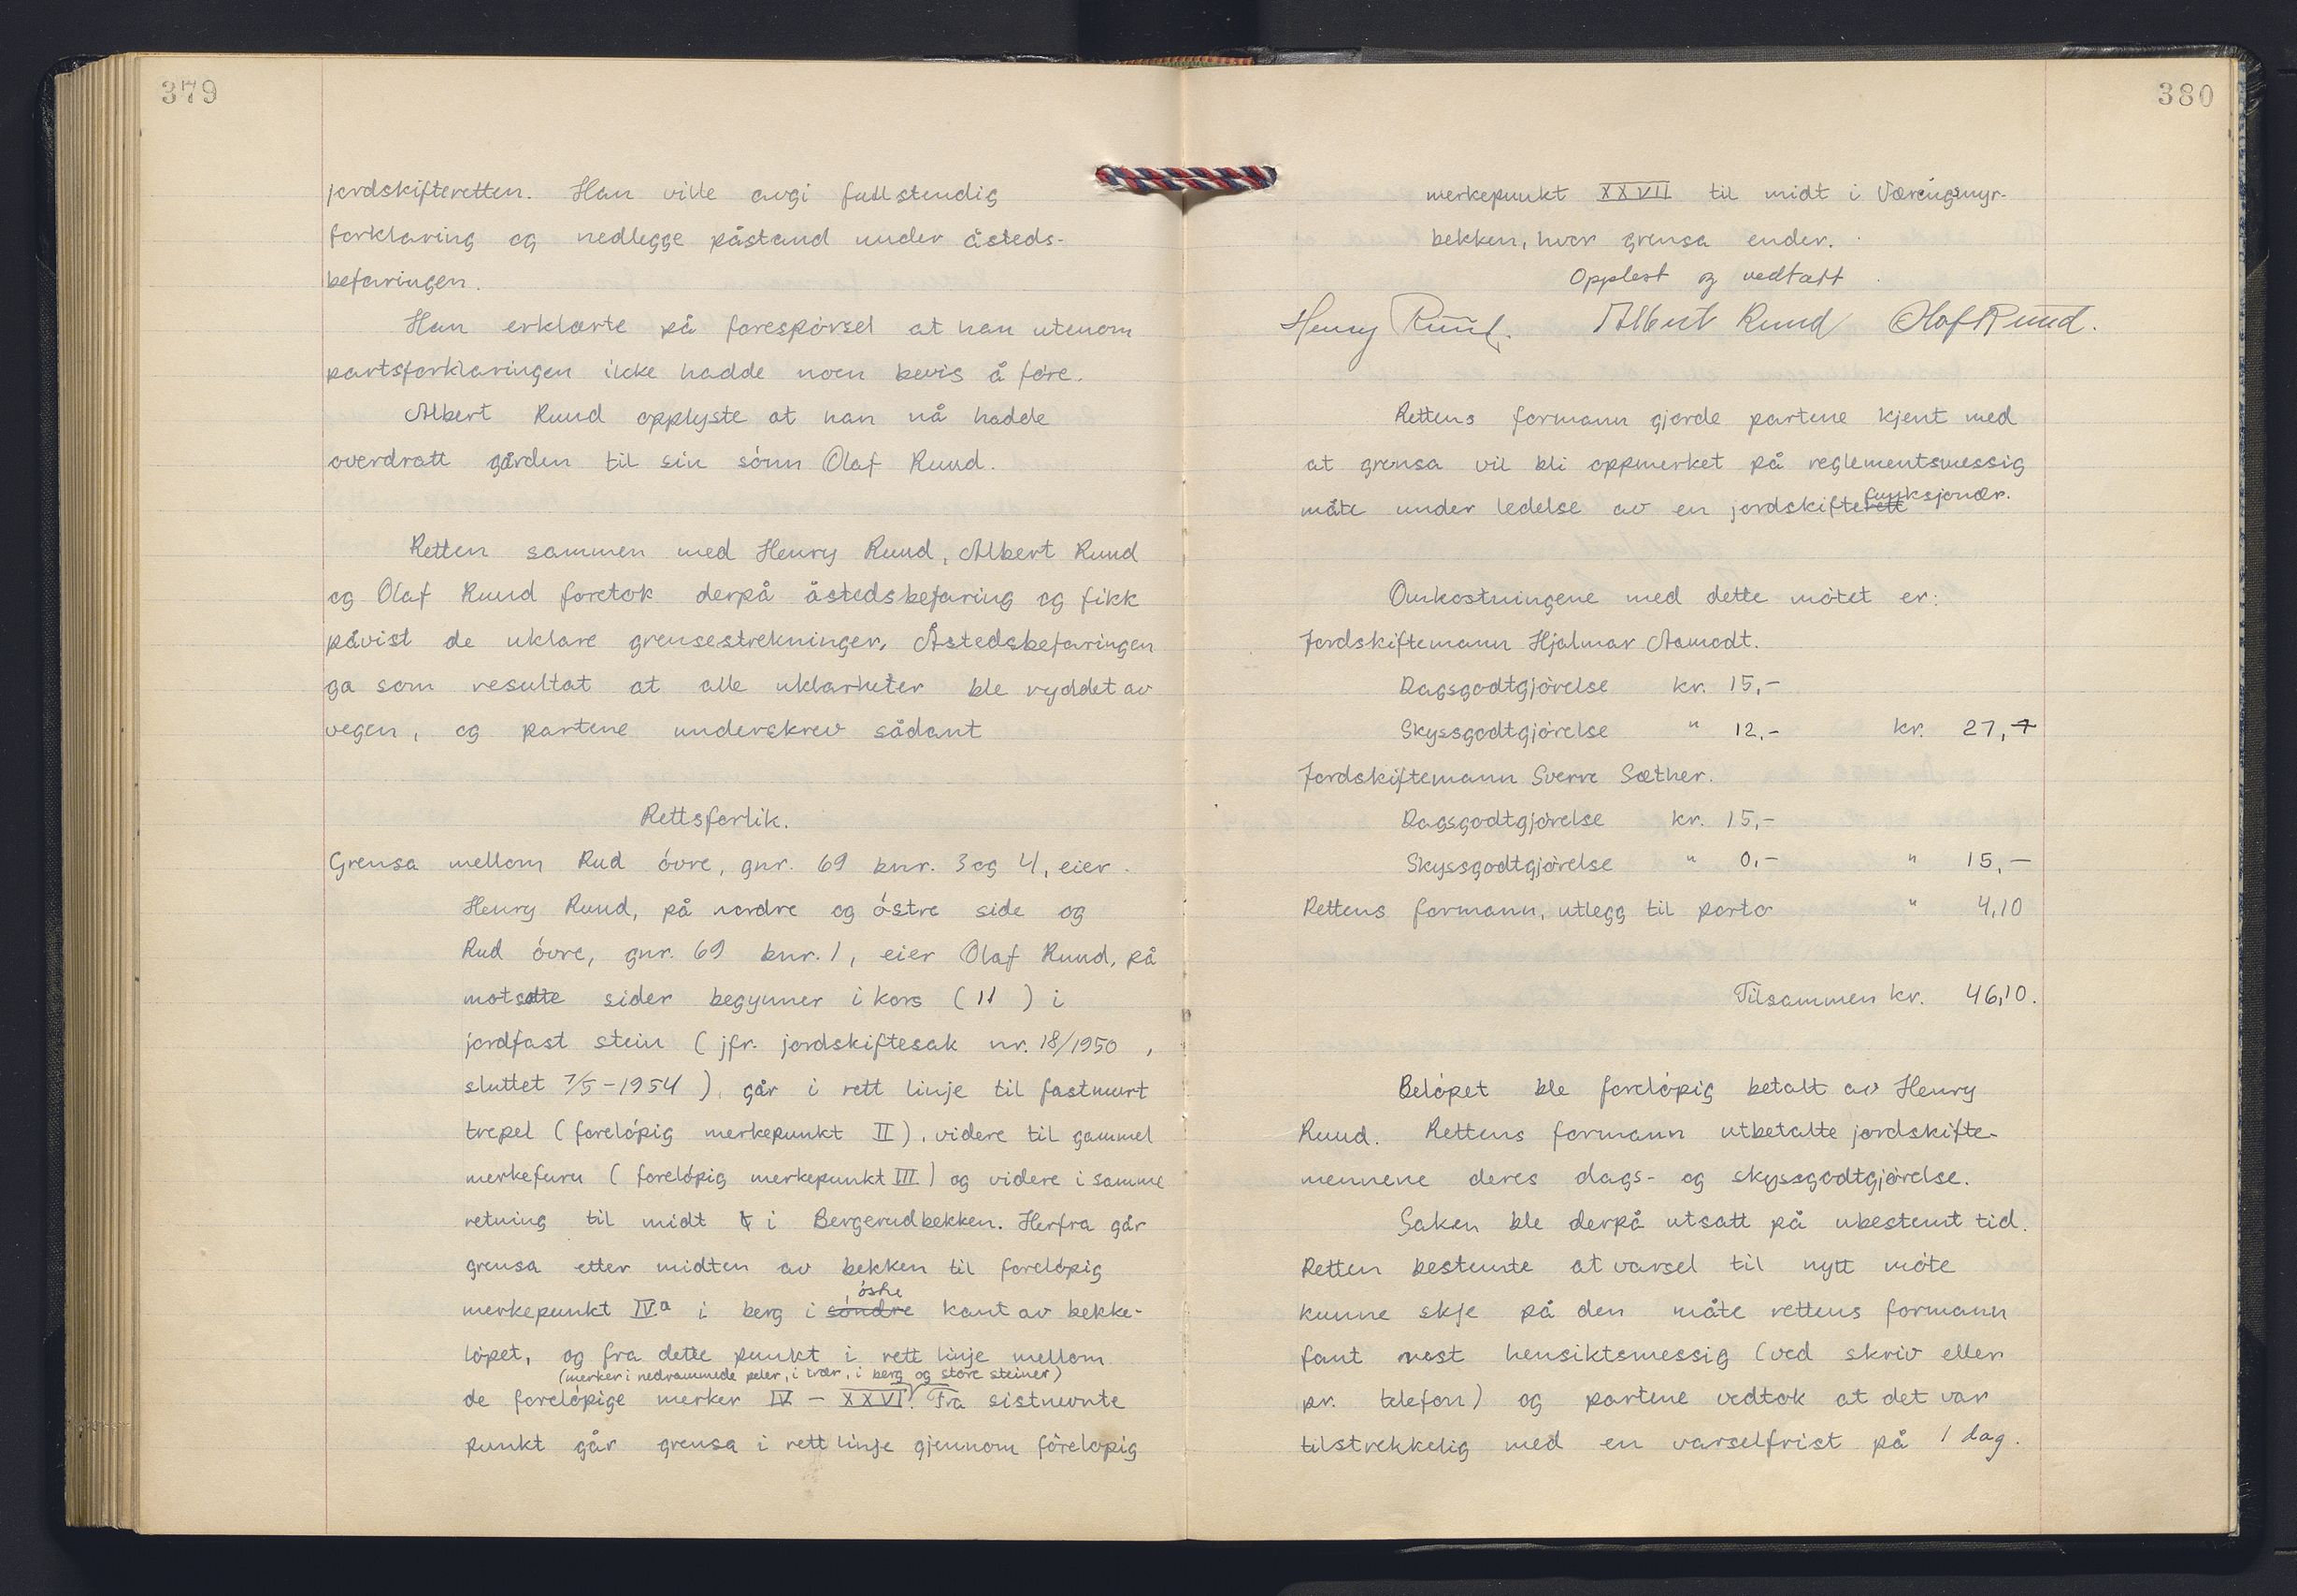 379
jordskifteretten. Han ville avgi fullstendig
forklaring og nedlegge påstand under åsteds-
befaringen.
Han erklærte på forespörsel at han utenom
partsforklaringen ikke hadde noen bevis å före.
Albert Ruud opplyste at han nå hadde
overdratt gården til sin sönn Olaf Ruud.
Retten sammen med Henry Ruud, Albert Ruud
og Olaf Ruud foretok derpå åstedsbefaring og fikk
påvist de uklare grensestrekninger. Åstedsbefaringen
ga som resultat at alle uklarheter ble ryddet av
vegen, og partene underskrev sådant
Rettsforlik.
Grensa mellom Rud övre, gnr. 69 bnr. 3 og 4, eier
Henry Ruud, på nordre og östre side og
Rud övre, gnr. 69 bnr. 1, eier Olaf Ruud, på
motsatte sider begynner i kors ( 11 ) i
jordfast stein ( jfr. jordskiftesak nr. 18/1950 ,
sluttet 7/5-1954 ), går i rett linje til fastmurt
trepel ( forelöpig merkepunkt II ), videre til gammel
merkefuru ( forelöpig merkepunkt III ) og videre i samme
retning til midt i Bergerudbekken. Herfra går
grensa etter midten av bekken til forelöpig
östre
merkepunkt IVa i berg i söndre kant av bekke-
löpet, og fra dette punkt i rett linje mellom
(merker i nedrammede peler, i trær, i berg og store steiner)
de forelöpige merker IV - XXVI. Fra sistnevnte
punkt går grensa i rett linje gjennom förelopig
380
merkepunkt XXVII til midt i Væreng­smyr-
bekken, hvor grensa ender.
Opplest og vedtatt
Henry Ruud. Albert Ruud Olaf Ruud.
Rettens formann gjorde partene kjent med
at grensa vil bli oppmerket på reglementsmessig
funksjonær.
måte under ledelse av en jordskifterett
Omkostningene med dette mötet er:
Jordskiftemann Hjalmar Aamodt.
Dagsgodtgjörelse kr. 15,-
Skyssgodtgjörelse " 12,- kr. 27,-
Jordskiftemann Sverre Sæther.
Dagsgodtgjörelse kr. 15,-
Skyssgodtgjörelse " 0,- " 15,-
Rettens formann, utlegg til porto " 4,10
Tilsammen kr. 46,10.
Belöpet ble forelöpig betalt av Henry
Ruud. Rettens formann utbetalte jordskifte-
mennene deres dags- og skyssgodtgjörelse.
Saken ble derpå utsatt på ubestemt tid.
Retten bestemte at varsel til nytt möte
kunne skje på den måte rettens formann
fant mest hensiktsmessig (ved skriv eller
pr. telefon) og partene vedtok at det var
tilstrekkelig med en varselfrist på 1 dag.